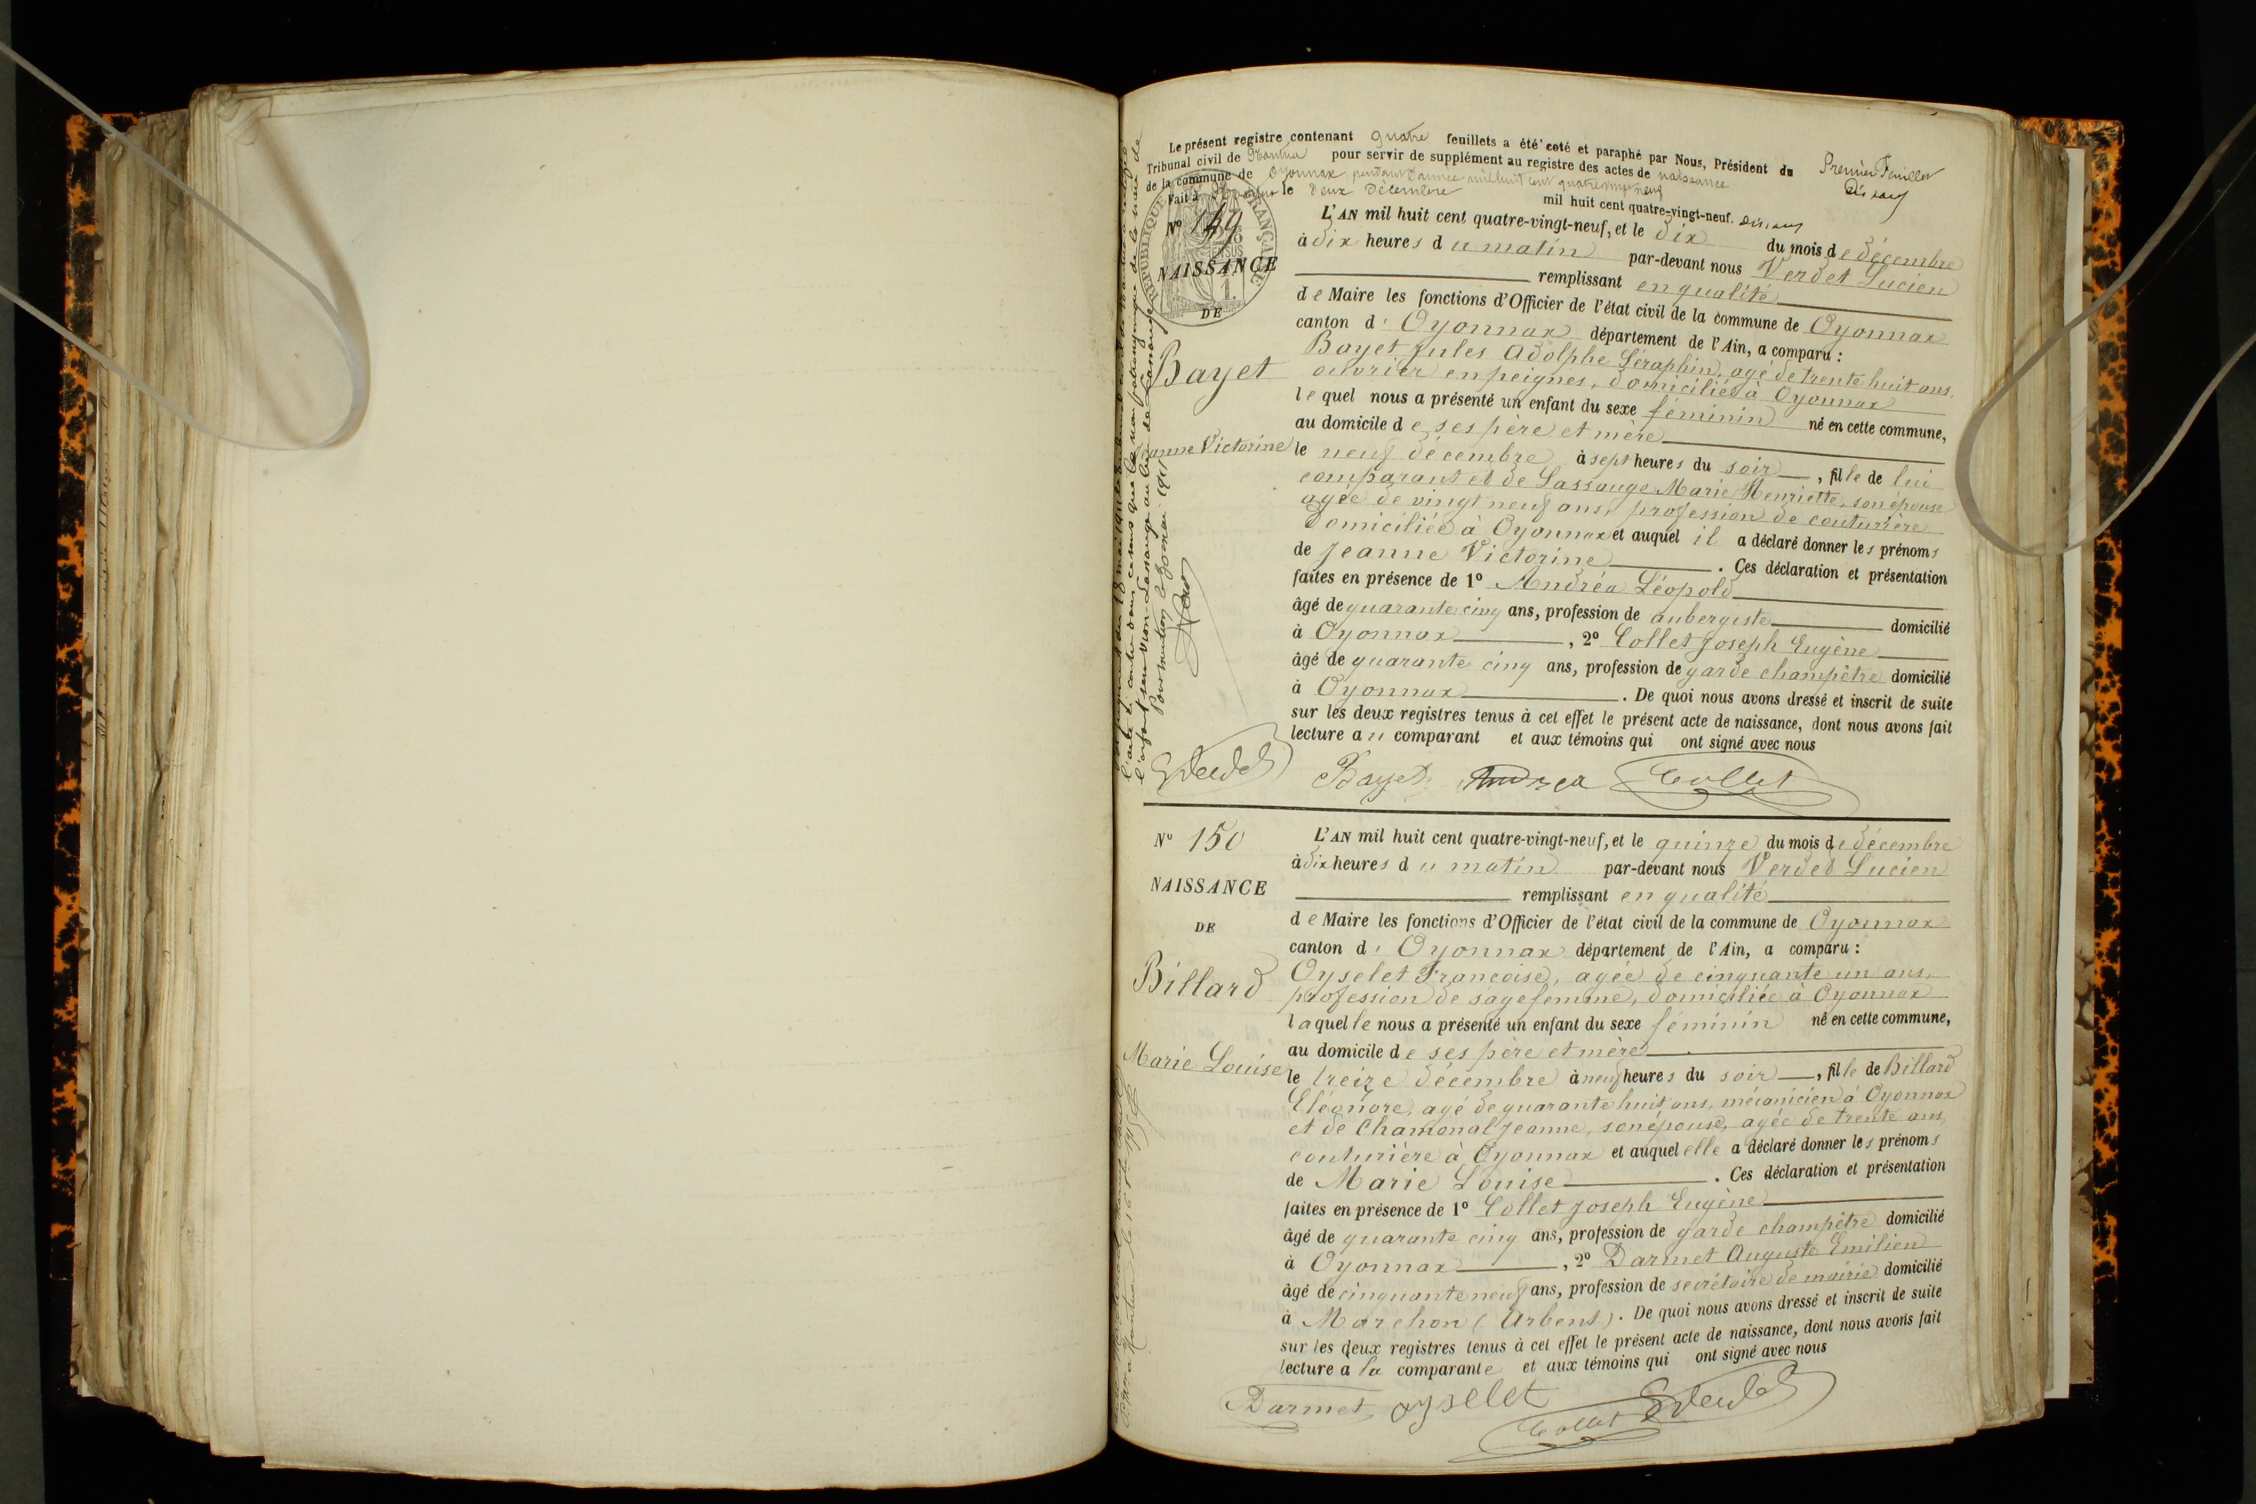 Le présent registre contenant quatre feuillets a été coté et paraphé par Nous, Président du
Tribunal civil de Nantua pour servir de supplément au registre des actes de naissance
de la commune de Oyonnax pendant l'année mil huit cent quatre vingt neuf
Fait à le deux Décembre mil huit cent quatre-vingt-neuf.
Premier Feuillet
RÉPUBLIQUE FRANÇAISE
N° 149
NAISSANCE
DE
Bayet
Jeanne Victorine
L'AN mil huit cent quatre-vingt-neuf, et le dix du mois de décembre
à dix heures du matin par-devant nous Verdet Lucien
remplissant en qualité
de Maire les fonctions d'Officier de l'état civil de la commune de Oyonnax
canton d' Oyonnax département de l'Ain, a comparu :
Bayet Jules Adolphe Séraphin, agé de trente huit ans,
ouvrier en peignes, domicilié à Oyonnax
lequel nous a présenté un enfant du sexe féminin né en cette commune,
au domicile de ses père et mère
le neuf décembre à sept heures du soir, fille de lui
comparant et de Lassauge Marie Henriette, son épouse
agée de vingt neuf ans, profession de couturière
domiciliée à Oyonnax et auquel il a déclaré donner les prénoms
de Jeanne Victorine. Ces déclaration et présentation
faites en présence de 1° Andréa Léopold
âgé de quarante cinq ans, profession de aubergiste domicilié
à Oyonnax, 2° Collet Joseph Eugène
âgé de quarante cinq ans, profession de garde champêtre domicilié
à Oyonnax. De quoi nous avons dressé et inscrit de suite
sur les deux registres tenus à cet effet le présent acte de naissance, dont nous avons fait
lecture au comparant et aux témoins qui ont signé avec nous
Verdet Bayet Andrea Collet
N° 150
NAISSANCE
DE
Billard
Marie Louise
L'AN mil huit cent quatre-vingt-neuf, et le quinze du mois de décembre
à dix heures du matin par-devant nous Verdet Lucien
remplissant en qualité
de Maire les fonctions d'Officier de l'état civil de la commune de Oyonnax
canton d' Oyonnax département de l'Ain, a comparu :
Oyselet Françoise, agée de cinquante un ans,
profession de sage femme, domiciliée à Oyonnax
laquelle nous a présenté un enfant du sexe féminin né en cette commune,
au domicile de ses père et mère
le treize décembre à neuf heures du soir, fille de Billard
Eléonore, agé de quarante huit ans, mécanicien à Oyonnax
et de Chamonal Jeanne, son épouse, agée de trente ans,
couturière à Oyonnax et auquel elle a déclaré donner les prénoms
de Marie Louise. Ces déclaration et présentation
faites en présence de 1° Collet Joseph Eugène
âgé de quarante cinq ans, profession de garde champêtre domicilié
à Oyonnax, 2° Darmet Auguste Emilien
âgé de cinquante neuf ans, profession de secrétaire de mairie domicilié
à Marchon (Arbent). De quoi nous avons dressé et inscrit de suite
sur les deux registres tenus à cet effet le présent acte de naissance, dont nous avons fait
lecture à la comparante et aux témoins qui ont signé avec nous
Darmet oyselet Collet Verdet